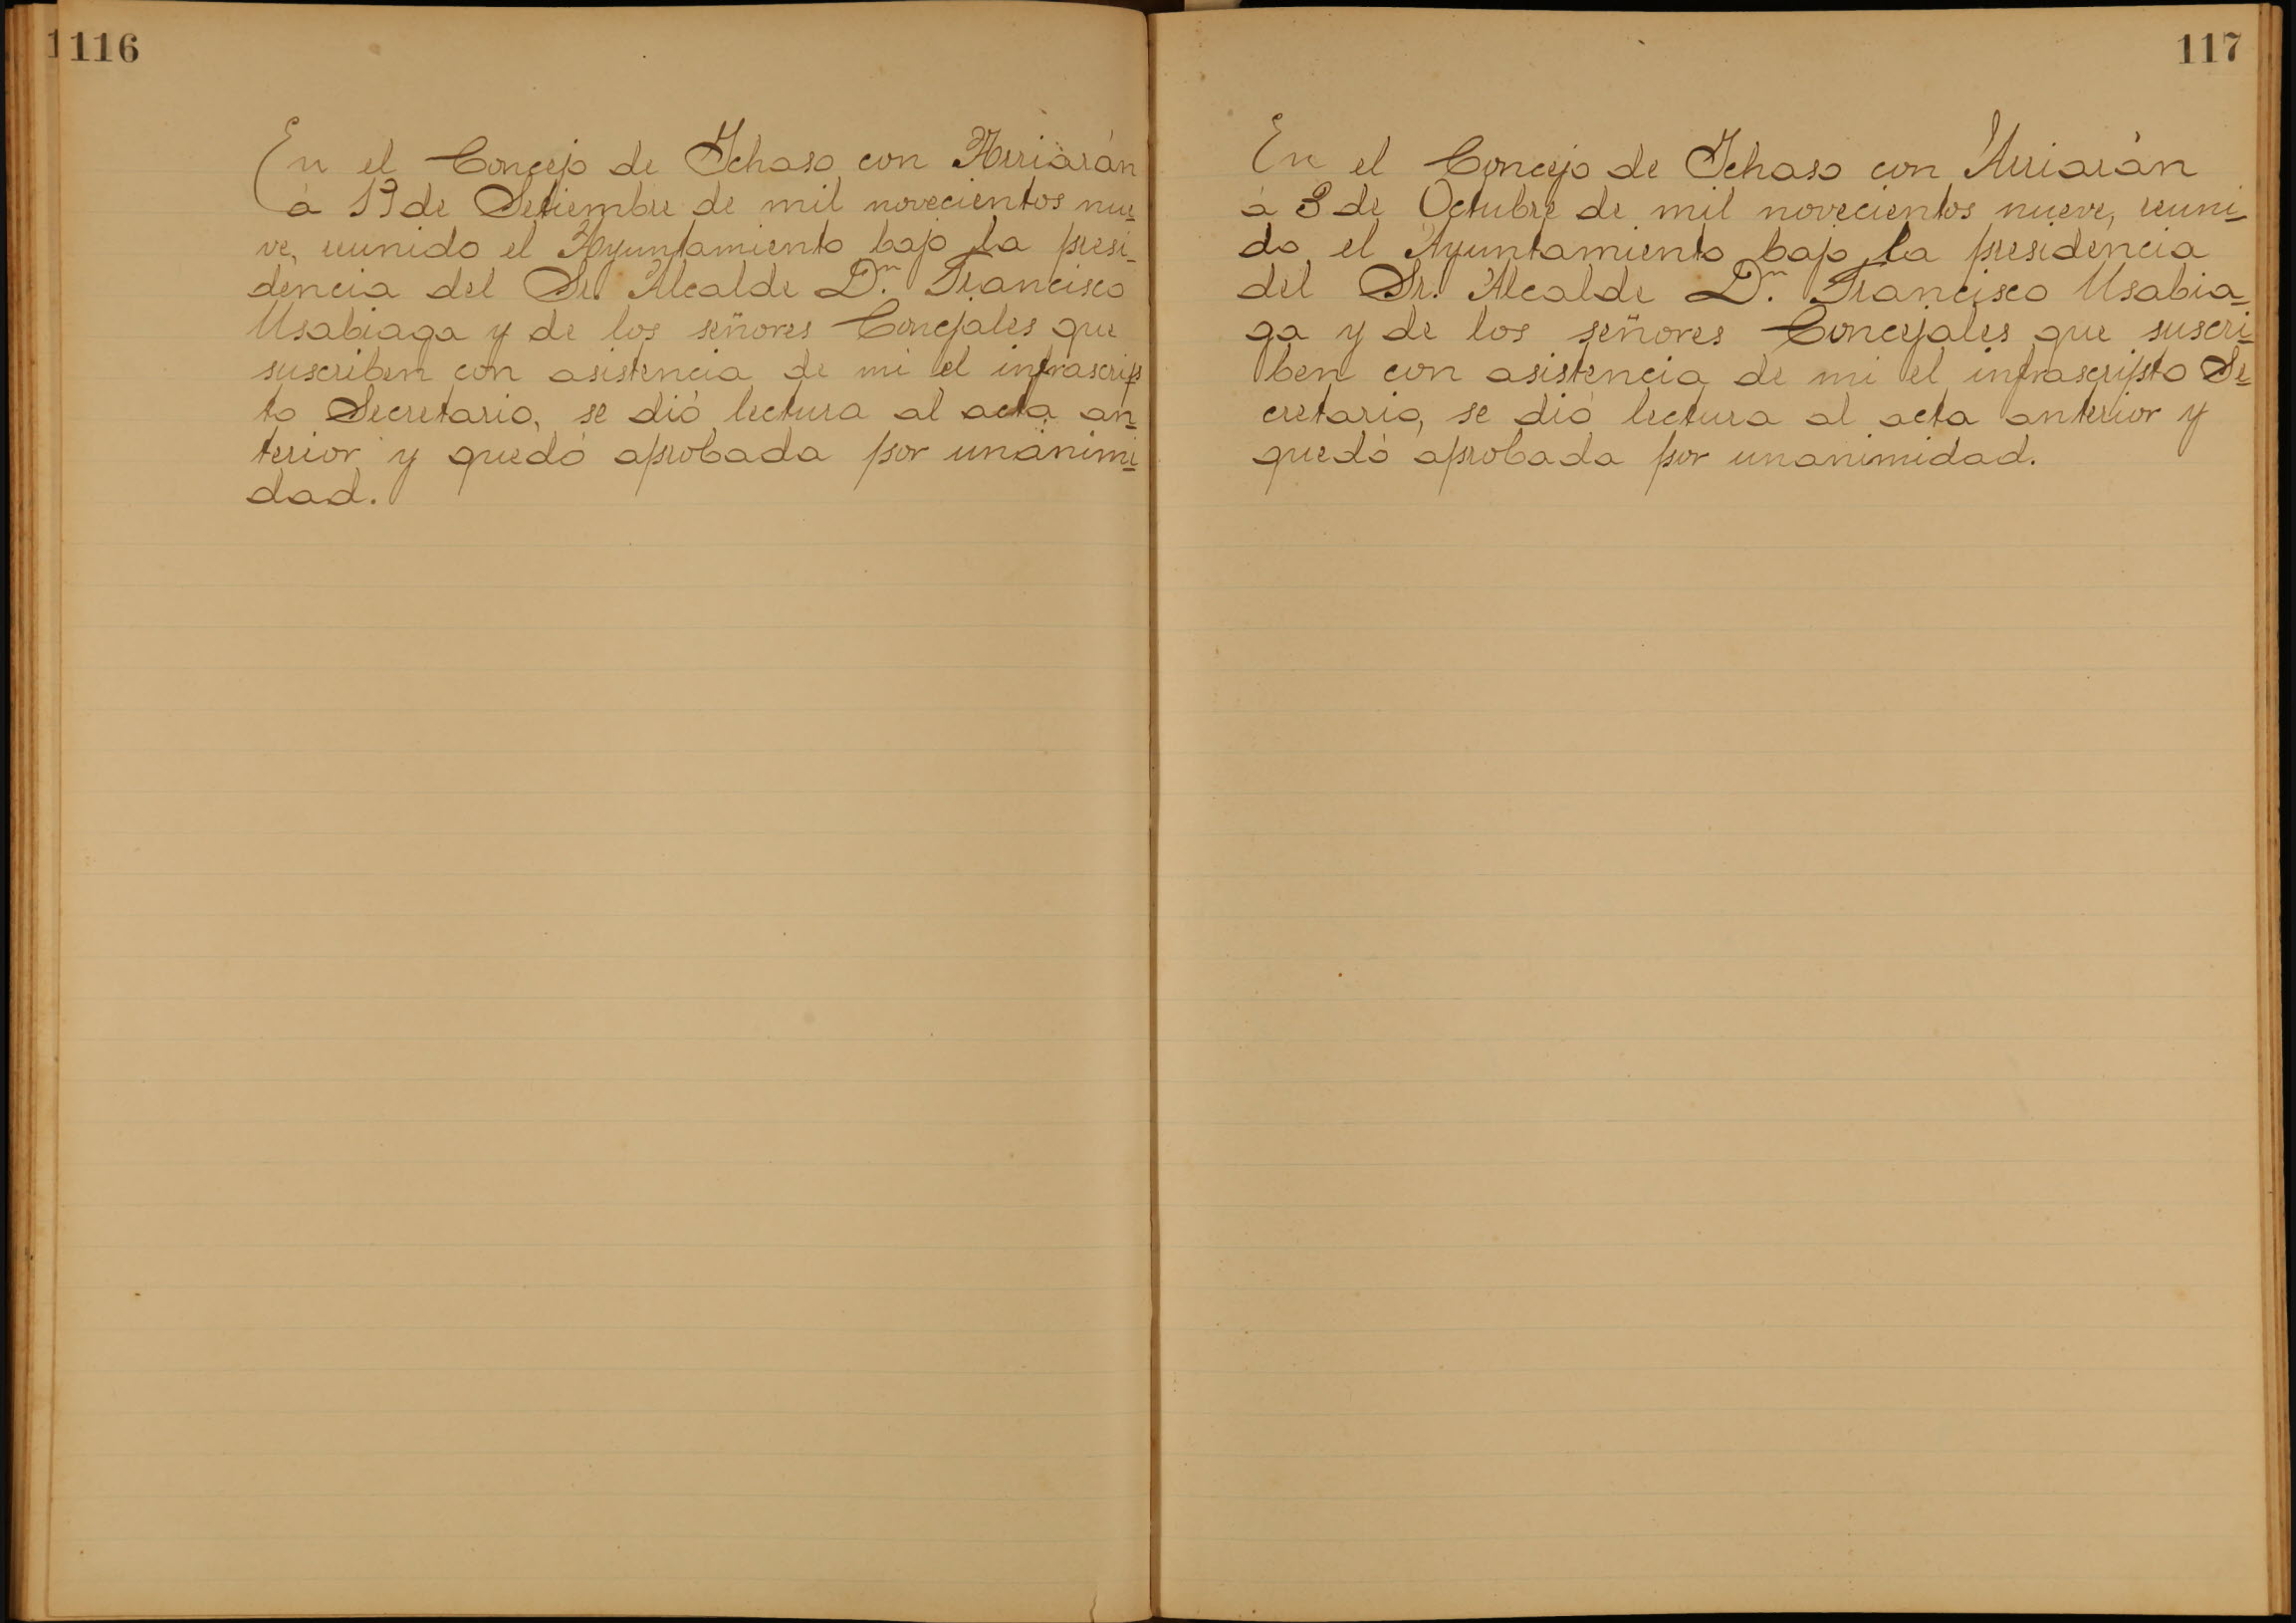 116
En el Concejo de Ichaso con Arriarán
á 19 de Setiembre de mil novecientos nue-
ve, reunido el Ayuntamiento bajo la presi-
dencia del Sr. Alcalde Dn. Francisco
Usabiaga y de los señores Concejales que
suscriben con asistencia de mi el infrascrip
to Secretario, se dió lectura al acta an-
terior y quedó aprobada por unanimi-
dad.
117
En el Concejo de Ichaso con Arriarán
á 3 de Octubre de mil novecientos nueve, reuni-
do el Ayuntamiento bajo la presidencia
del Sr. Alcalde Dn. Francisco Usabia-
ga y de los señores Concejales que suscri-
ben con asistencia de mi el infrascripto Se-
cretario, se dió lectura al acta anterior y
quedó aprobada por unanimidad.